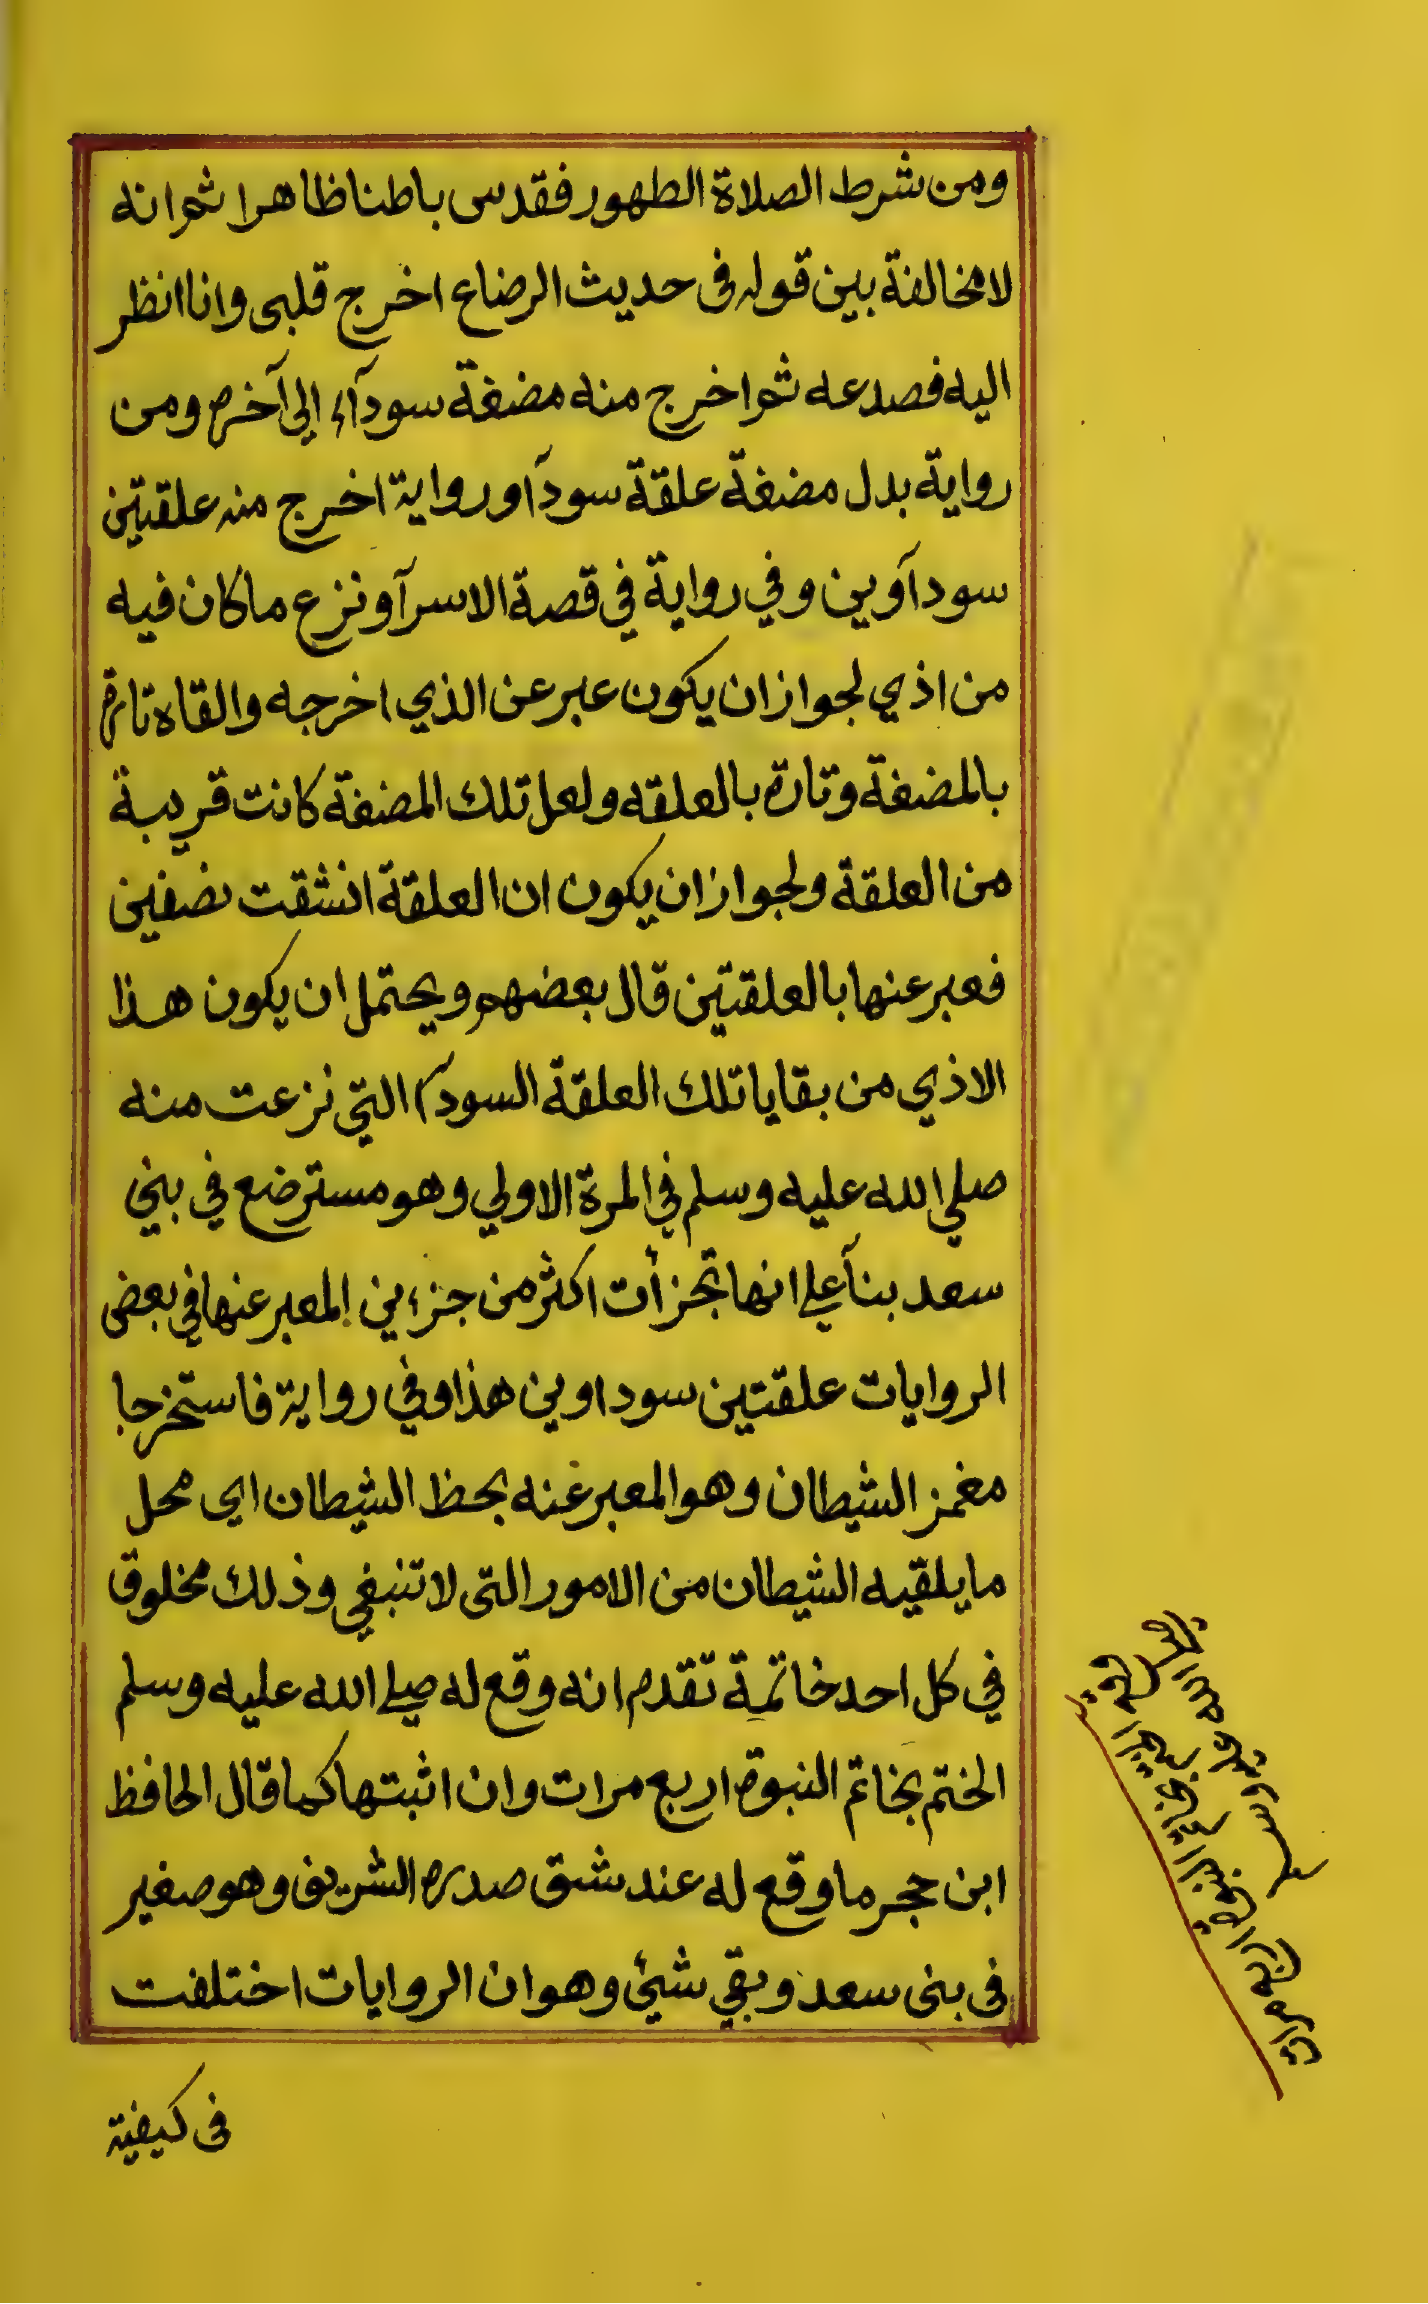 ومن شرط الصلاة الطهور فقدس باطنا ظاهرا ثم انه
لا مخالفة بين قوله في حديث الرضاع اخرج قلبي وانا انظر
اليه فصدعه ثم اخرج منه مضغة سودآء إلى آخره ومن
رواية بدل مضغة علقة سودآ ورواية اخرج منه علقتين
سودآوين وفي رواية في قصة الاسرآ ونزع ما كان فيه
من اذي لجواز ان يكون عبر عن الذي اخرجه والقاه تارة
بالمضغة وتارة بالعلقه ولعل تلك المضغة كانت قريبة
من العلقة ولجواز ان يكون ان العلقة انشقت نصفين
فعبر عنها بالعلقتين قال بعضهم ويحتمل ان يكون هذا
الاذي من بقايا تلك العلقة السودآ التي نزعت منه
صلي الله عليه وسلم في المرة الاولي وهو مسترضع في بني
سعد بنآ علي انها تجزأت اكثر من جزءين المعبر عنها في بعض
الروايات علقتين سوداوين هذا وفي رواية فاستخرجا
مغمز الشيطان وهو المعبر عنه بحظ الشيطان اي محل
ما يلقيه الشيطان من الامور التي لا تنبغي وذلك مخلوق
في كل احد خاتمة تقدم انه وقع له صلي الله عليه وسلم
الختم بخاتم النبوة اربع مرات وان اثبتها كما قال الحافظ
ابن حجر ما وقع له عند شق صدره الشريف وهو صغير
في بني سعد وبقي شيئ وهو ان الروايات اختلفت
في كيفية
صلي الله عليه وسلم
بخاتم النبوة اربع مرات